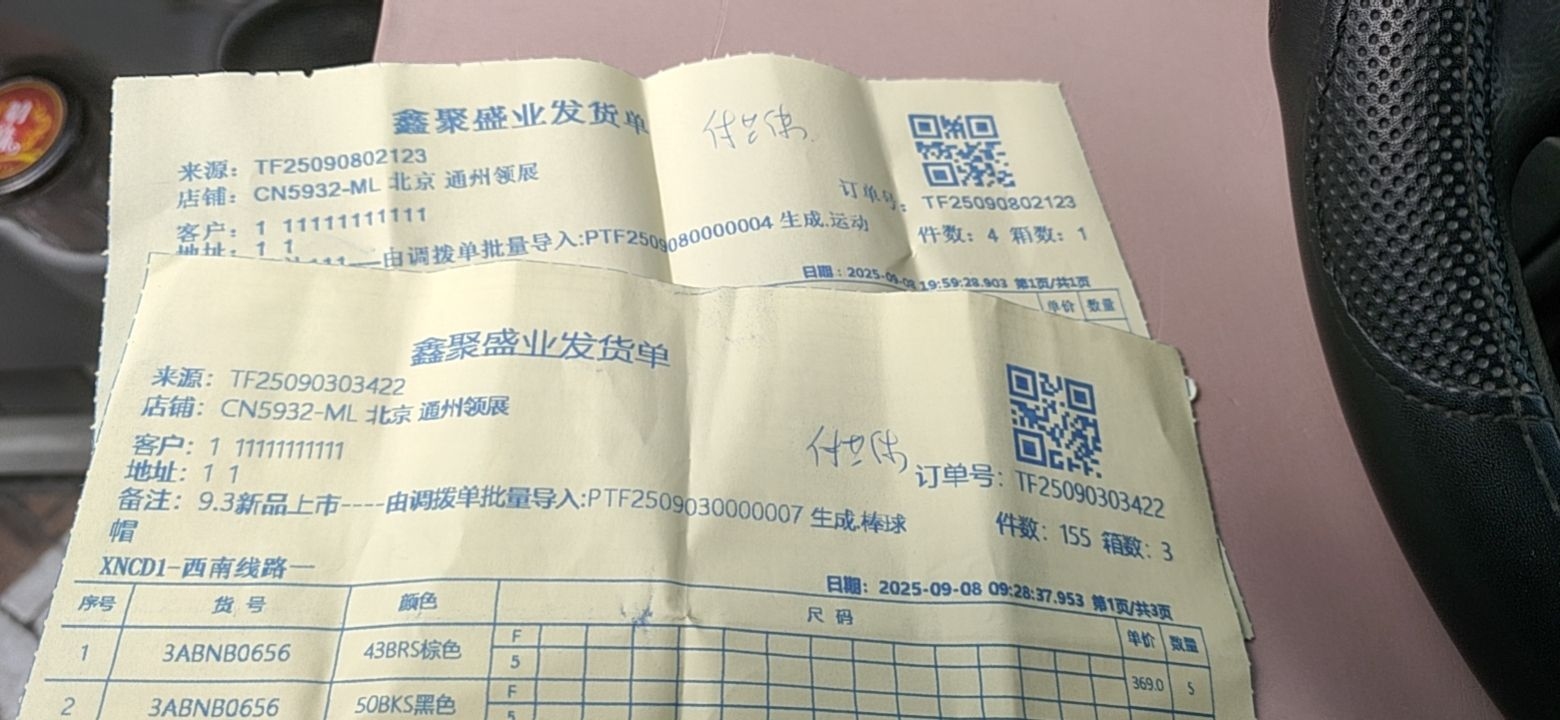 鑫聚盛业发货单
付兰伟
来源：TF25090802123
店铺：CN5932-ML 北京 通州领展
订单号：TF25090802123
客户：1 11111111111
件数：4 箱数：1
地址：1 1
由调拨单批量导入:PTF2509080000004 生成.运动
日期：2025-09-08 19:59:28.903 第1页/共1页
单价 数量
鑫聚盛业发货单
来源：TF25090303422
店铺：CN5932-ML 北京 通州领展
客户：1 11111111111
付兰伟
订单号：TF25090303422
地址：1 1
备注：9.3新品上市----由调拨单批量导入:PTF2509030000007 生成.棒球
帽
件数：155 箱数：3
XNCD1-西南线路一
日期：2025-09-08 09:28:37.953 第1页/共3页
序号 货号 颜色 尺码 单价 数量
1 3ABNB0656 43BRS棕色 F 369.0 5
5
2 3ABNB0656 50BKS黑色 F
5